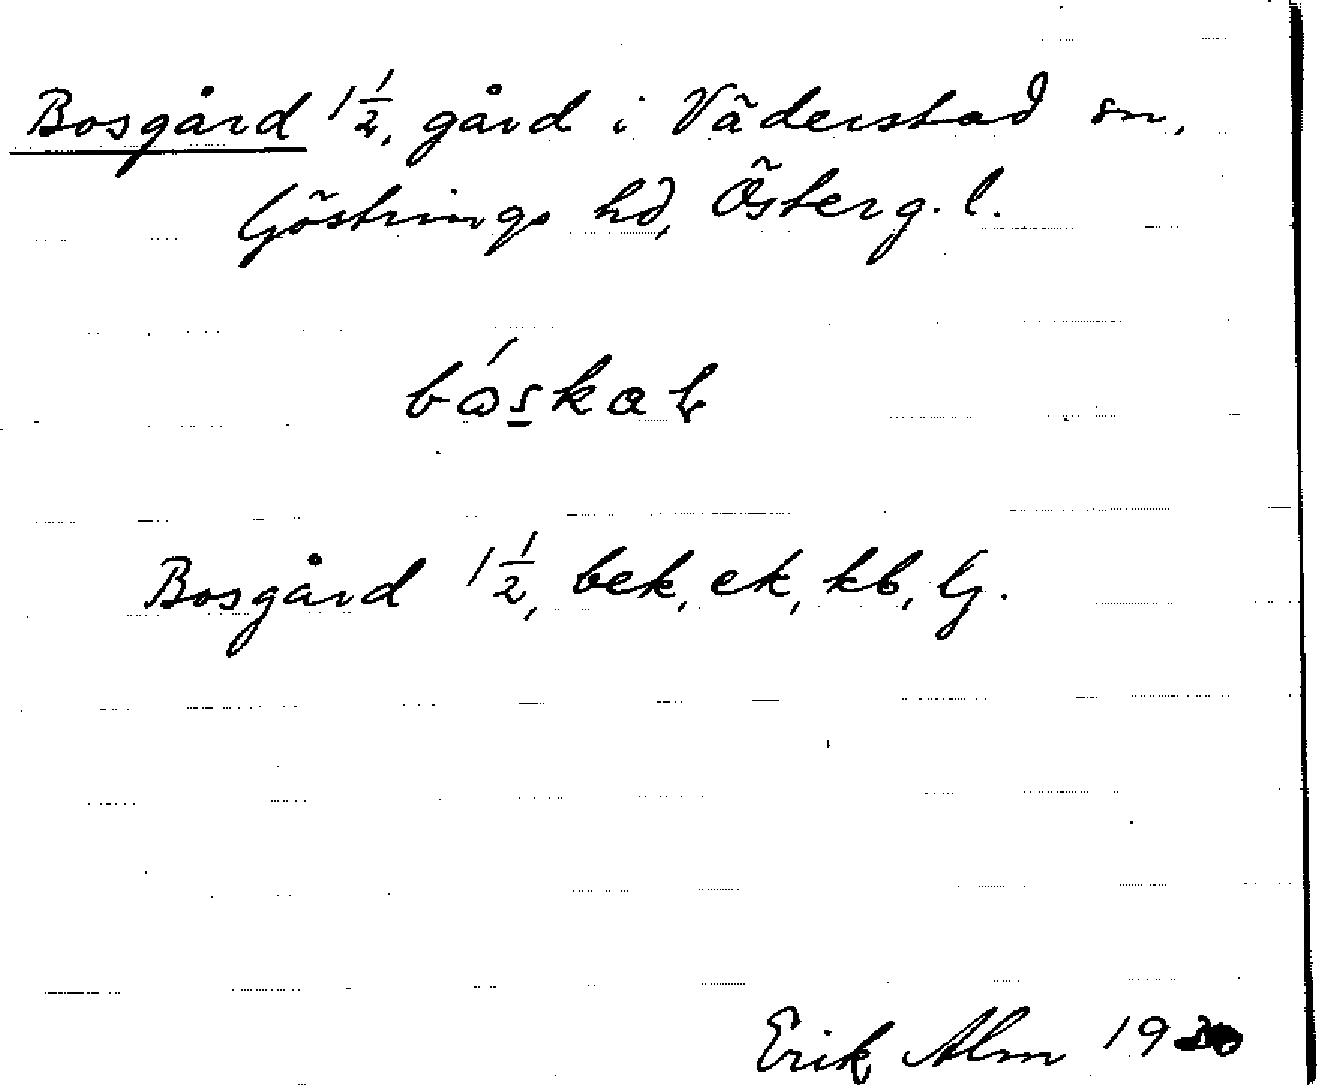 Bosgård 1 1/2, gård i Väderstad sn,
Göstrings hd, Österg. l.
Bosgård 1 1/2, bek, ek, kb, Gj.
Erik Alm 19